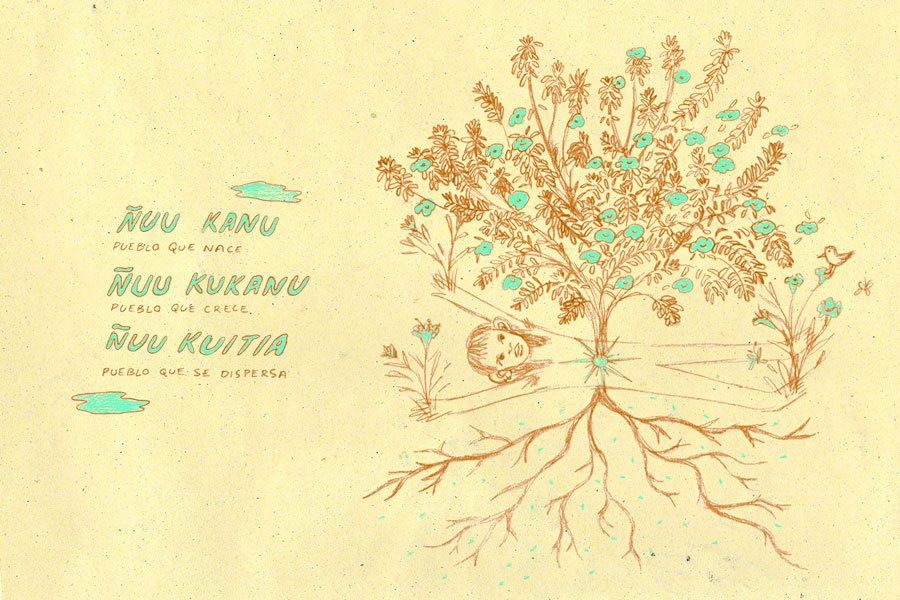 ÑUU KANU
PUEBLO QUE NACE.
ÑUU KUKANU
PUEBLO QUE CRECE.
ÑUU KUITIA
PUEBLO QUE SE DISPERSA